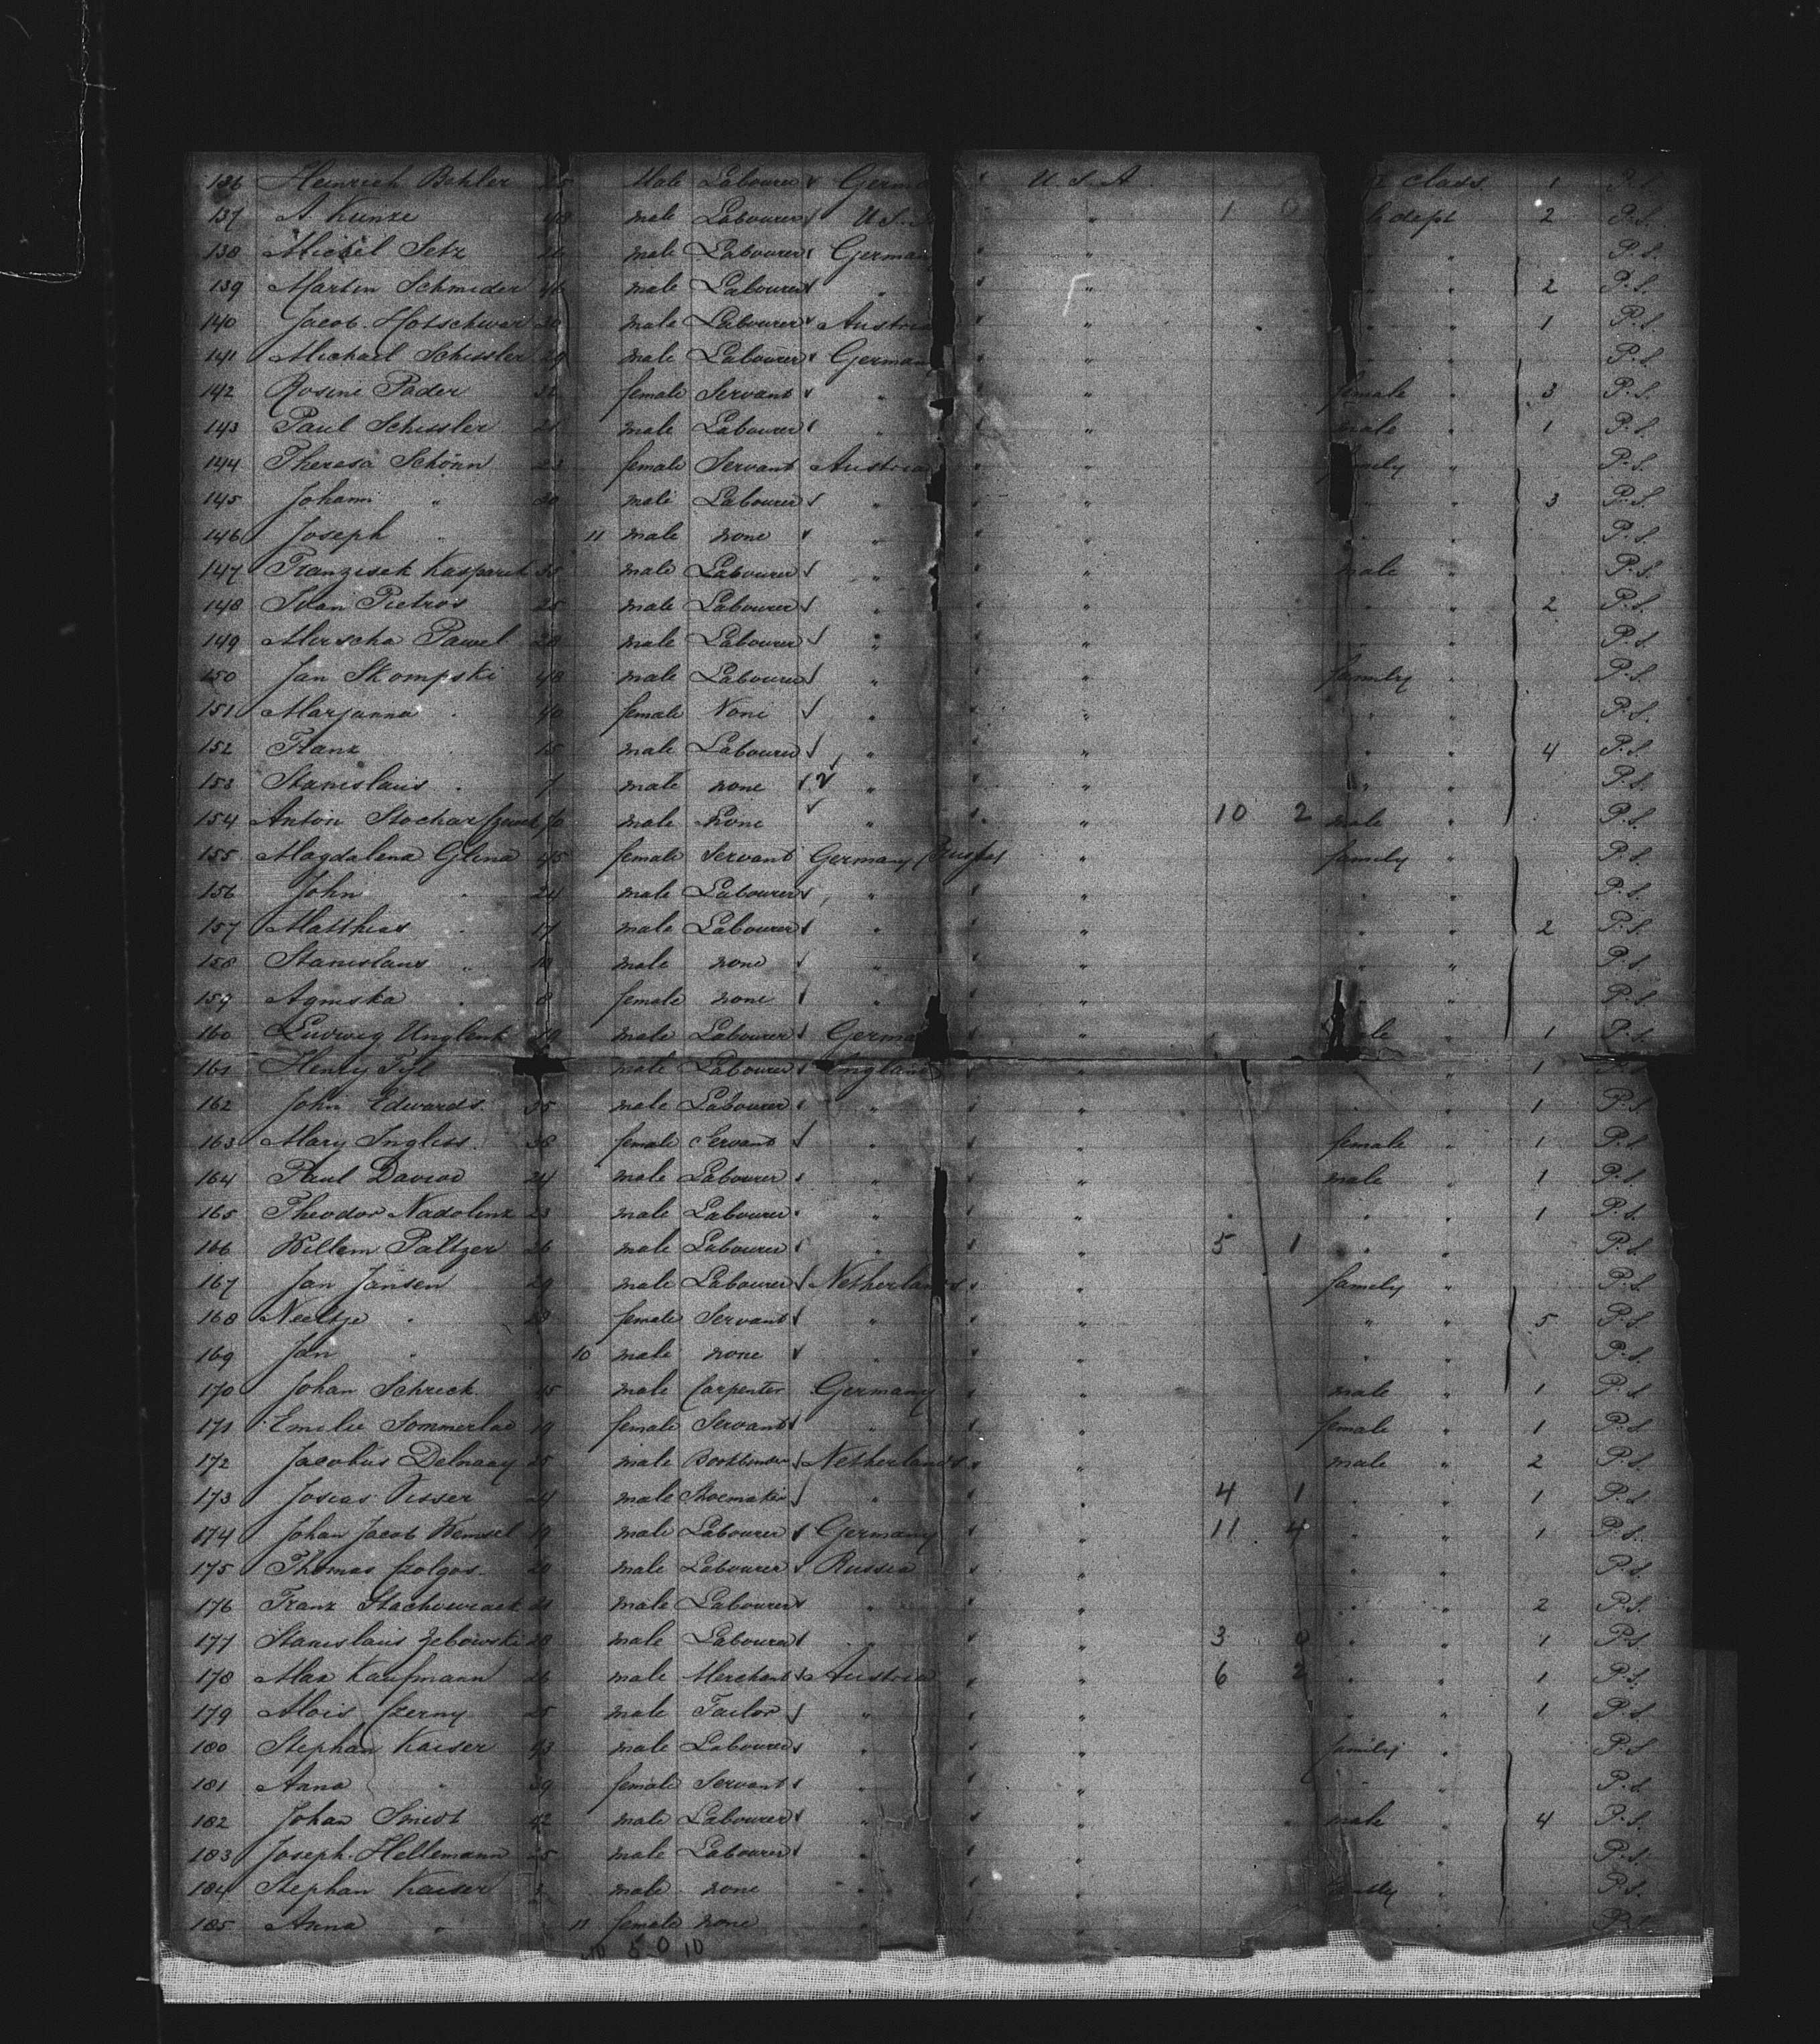 136 Heinrich Bohler 25 Male Labourer Germ U.S.A. class 1 P.S.
137 A. Kunze male Labourer U.S. " 1 0 dept 2 P.S.
138 Michel Setz male Labourer Germany " " P.S.
139 Martin Schmider 46 male Labourer " " " 2 P.S.
140 Jacob Hotschwar 20 male Labourer Austria " " 1 P.S.
141 Michael Schissler 29 male Labourer German " " P.S.
142 Rosine Pader 32 female Servant " " female " 3 P.S.
143 Paul Schissler 21 male Labourer " " male " 1 P.S.
144 Theresa Schönn 23 female Servant Austria " family " P.S.
145 Johann " 30 male Labourer " " " 3 P.S.
146 Joseph " 11 male none " " " " P.S.
147 Franzisek Kasparek 35 male Labourer " " male " P.S.
148 Ivan Pietros 25 male Labourer " " " " 2 P.S.
149 Merscha Pawel 28 male Labourer " " " " P.S.
150 Jan Skompski 48 male Labourer " " family " P.S.
151 Marjanna " 40 female None " " " " P.S.
152 Franz " 15 male Labourer " " " " 4 P.S.
153 Stanislaus " 7 male none " " " " P.S.
154 Anton male None " " 10 2 male " P.S.
155 Magdalena Glina 45 female Servant Germany " family " P.S.
156 John " 24 male Labourer " " " " P.S.
157 Matthias " 17 male Labourer " " " " 2 P.S.
158 Stanislaus " male none " " " " P.S.
159 Agniska " 8 female none " " " P.S.
160 Ludwig Unglenk 19 male Labourer Germa " " 1 P.S.
161 Henry male Labourer England " " 1 P.S.
162 John Edwards 35 male Labourer " " " " 1 P.S.
163 Mary Ingliss 38 female Servant " " female " 1 P.S.
164 Paul David 24 male Labourer " " male " 1 P.S.
165 Theodor Nadolinz 23 male Labourer " " " " 1 P.S.
166 Willem Paltzer 26 male Labourer " " 5 1 " " P.S.
167 Jan Jansen 29 male Labourer Netherlands " family " P.S.
168 Neeltje " 28 female Servant " " " " 5 P.S.
169 Jan " 10 male none " " " " P.S.
170 Johan Schreck 45 male Carpenter Germany " male " 1 P.S.
171 Emilie Sommerlad 19 female Servant " " female " 1 P.S.
172 Jacobus Delnaay 25 male Bookbinder Netherlands " male " 2 P.S.
173 Josias Visser 24 male Shoemaker " " 4 1 " " 1 P.S.
174 Johan Jacob Wensel 19 male Labourer Germany " 11 4 " " 1 P.S.
175 Thomas Czolgos 20 male Labourer Russia " " " P.S.
176 Franz Stachowiack 21 male Labourer " " " " 2 P.S.
177 Stanislaus Zebowski 28 male Labourer " " 3 0 " " 1 P.S.
178 Max Kaufmann 26 male Merchant Austria " 6 2 " " 1 P.S.
179 Alois Czerny 25 male Tailor " " " " 1 P.S.
180 Stephan Kaiser 43 male Labourer " " family " P.S.
181 Anna " 39 female Servant " " " " P.S.
182 Johan Smidt 42 male Labourer " " male " 4 P.S.
183 Joseph Hellemann 25 male Labourer " " " P.S.
184 Stephan Kaiser 3 male none " " family " P.S.
185 Anna " 11 female none " " P.S.
5 0 10